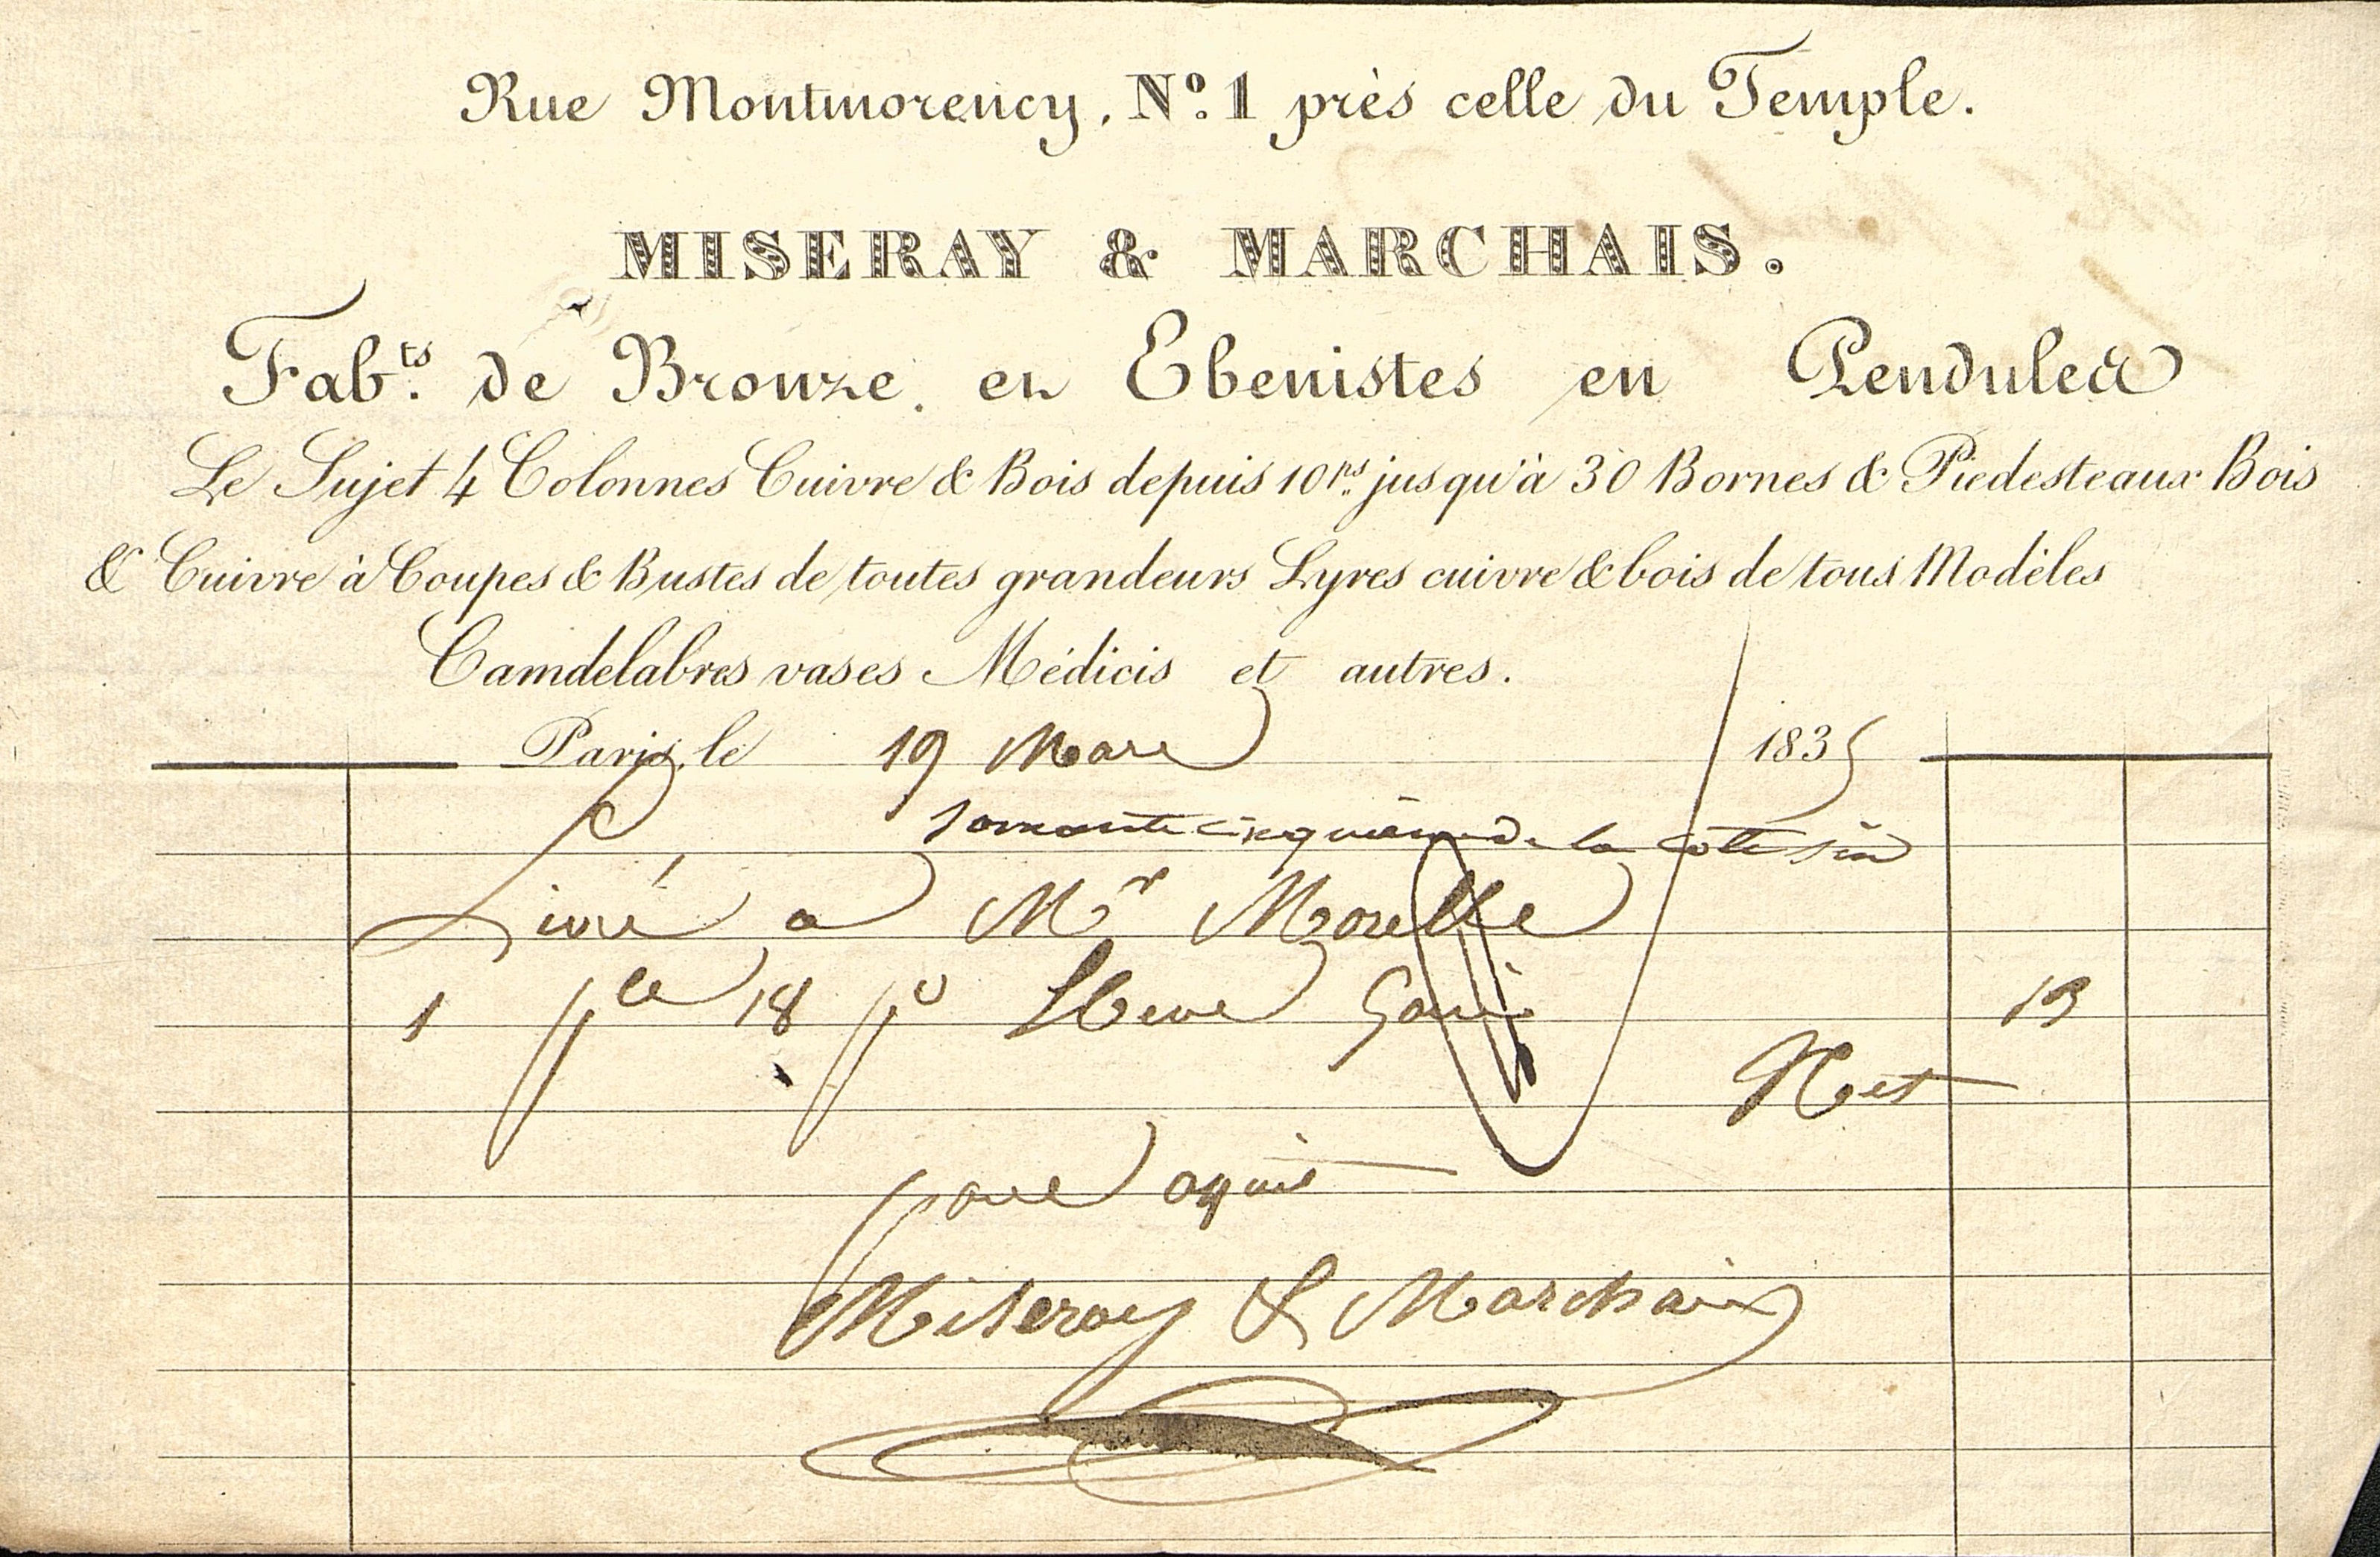 Rue Montmorency, Nº. 1 près celle du Temple.
MISERAY & MARCHAIS.
Fab.ts de Bronze. en Ebenistes en Pendules
Le Sujet 4 Colonnes Cuivre & Bois depuis 10 ps. jusqu'à 30 Bornes & Piedesteaux Bois
& Cuivre à Coupes & Bustes de toutes grandeurs Lyres cuivre & bois de tous Modèles
Camdelabres vases Médicis et autres.
Paris, le 19 Mars 1835
soixante cinquième de la cote six
Livré a Mr Morelle
1 18 13
Net
pour aquit
Miseray & Marchais